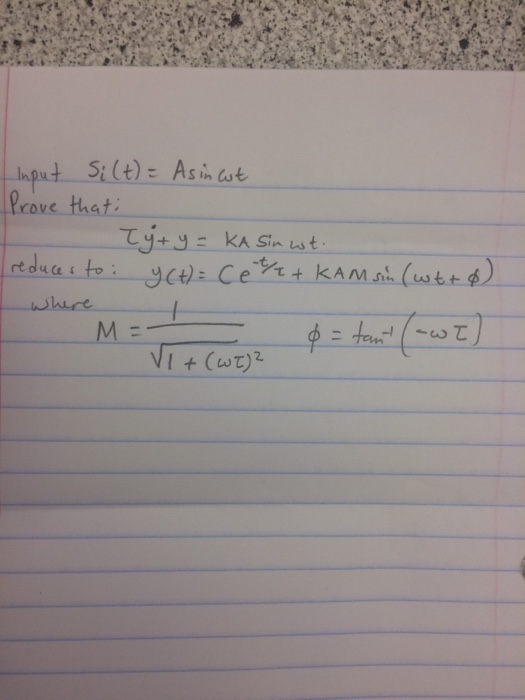 Input Si(t) = A sin ωt
Prove that:
τẏ + y = KA Sin ωt.
reduces to: y(t) = Ce^-t/τ + KAM sin (ωt + φ)
where
M = 1/√1 + (ωτ)² φ = tan⁻¹ (-ωτ)